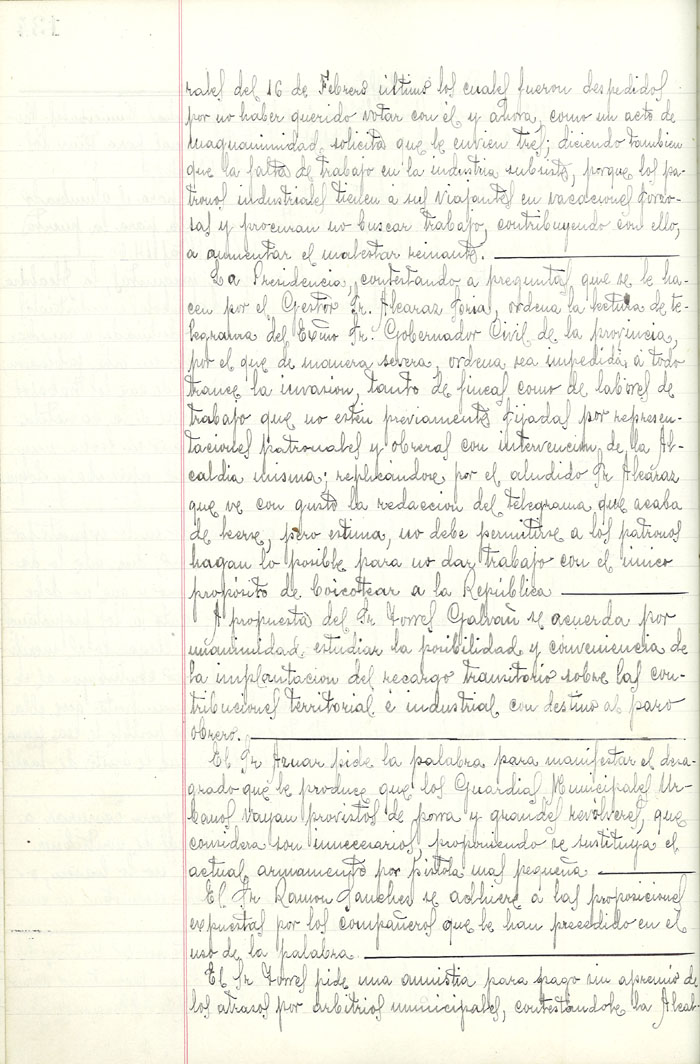 rales del 16 de Febrero último los cuales fueron despedidos
por no haber querido votar con él y ahora, como un acto de
magnanimidad, solicita que le envien tres; diciendo tambien
que la falta de trabajo en la industria subsiste, porque los pa-
tronos industriales tienen á sus viajantes en vacaciones forzo-
sas y procuran no buscar trabajo, contribuyendo con ello,
a aumentar el malestar reinante.
La Presidencia, contestando a preguntas que se le ha-
cen por el Gestor Sr. Alcaraz Soria, ordena la lectura de te-
legrama del Exmo Sr. Gobernador Civil de la provincia,
por el que de manera severa, ordena sea impedida á todo
trance la invasion, tanto de fincas como de labores de
trabajo que no esten previamente fijadas por represen-
taciones patronales y obreras con intervención de la Al-
caldia misma; replicandose por el aludido Sr Alcaraz
que ve con gusto la redaccion del telegrama que acaba
de leerse, pero estima, no debe permitirse a los patronos
hagan lo posible para no dar trabajo con el único
propósito de boicotear a la República
A propuesta del Sr Torres Galvañ se acuerda por
unanimidad, estudiar la posibilidad y conveniencia de
la implantacion del recargo transitorio sobre las con-
tribuciones territorial é industrial con destino al paro
obrero.
El Sr Aznar pide la palabra para manifestar el desa-
grado que le produce que los Guardias Municipales Ur-
banos vayan provistos de porra y grandes revólveres, que
considera son innecesarios, proponiendo se sustituya el
actual armamento por pistola mas pequeña
El Sr Ramon Sanchez se adhiere a las proposiciones
expuestas por los compañeros que le han precedido en el
uso de la palabra.
El Sr Torres pide una amnistia para pago sin apremio de
los atrasos por arbitrios municipales, contestandole la Alcal-